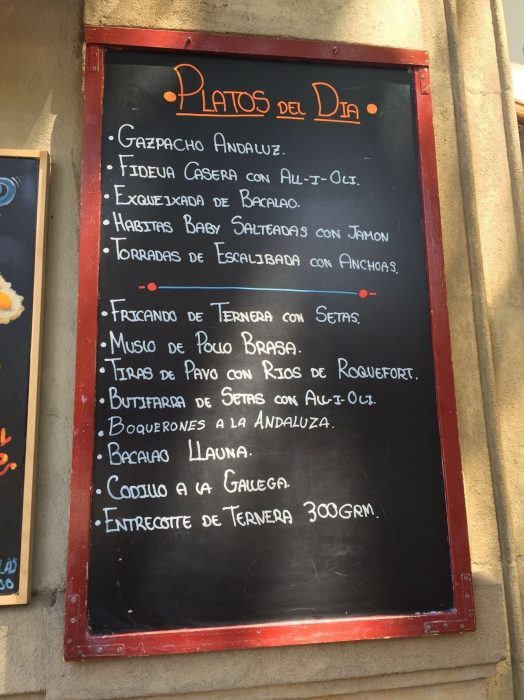 Platos del Dia
• Gazpacho Andaluz.
• Fideua Casera con All-i-Oli.
• Exqueixada de Bacalao.
• Habitas Baby Salteadas con Jamon
• Torradas de Escalibada con Anchoas.
• Fricando de Ternera con Setas.
• Muslo de Pollo Brasa.
• Tiras de Pavo con Rios de Roquefort.
• Butifarra de Setas con All-i-Oli.
• Boquerones a la Andaluza.
• Bacalao Llauna.
• Codillo a la Gallega.
• Entrecotte de Ternera 300grm.